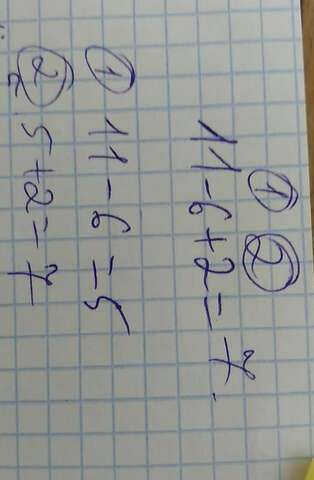 ① ②
11-6+2=7
① 11-6=5
② 5+2=7